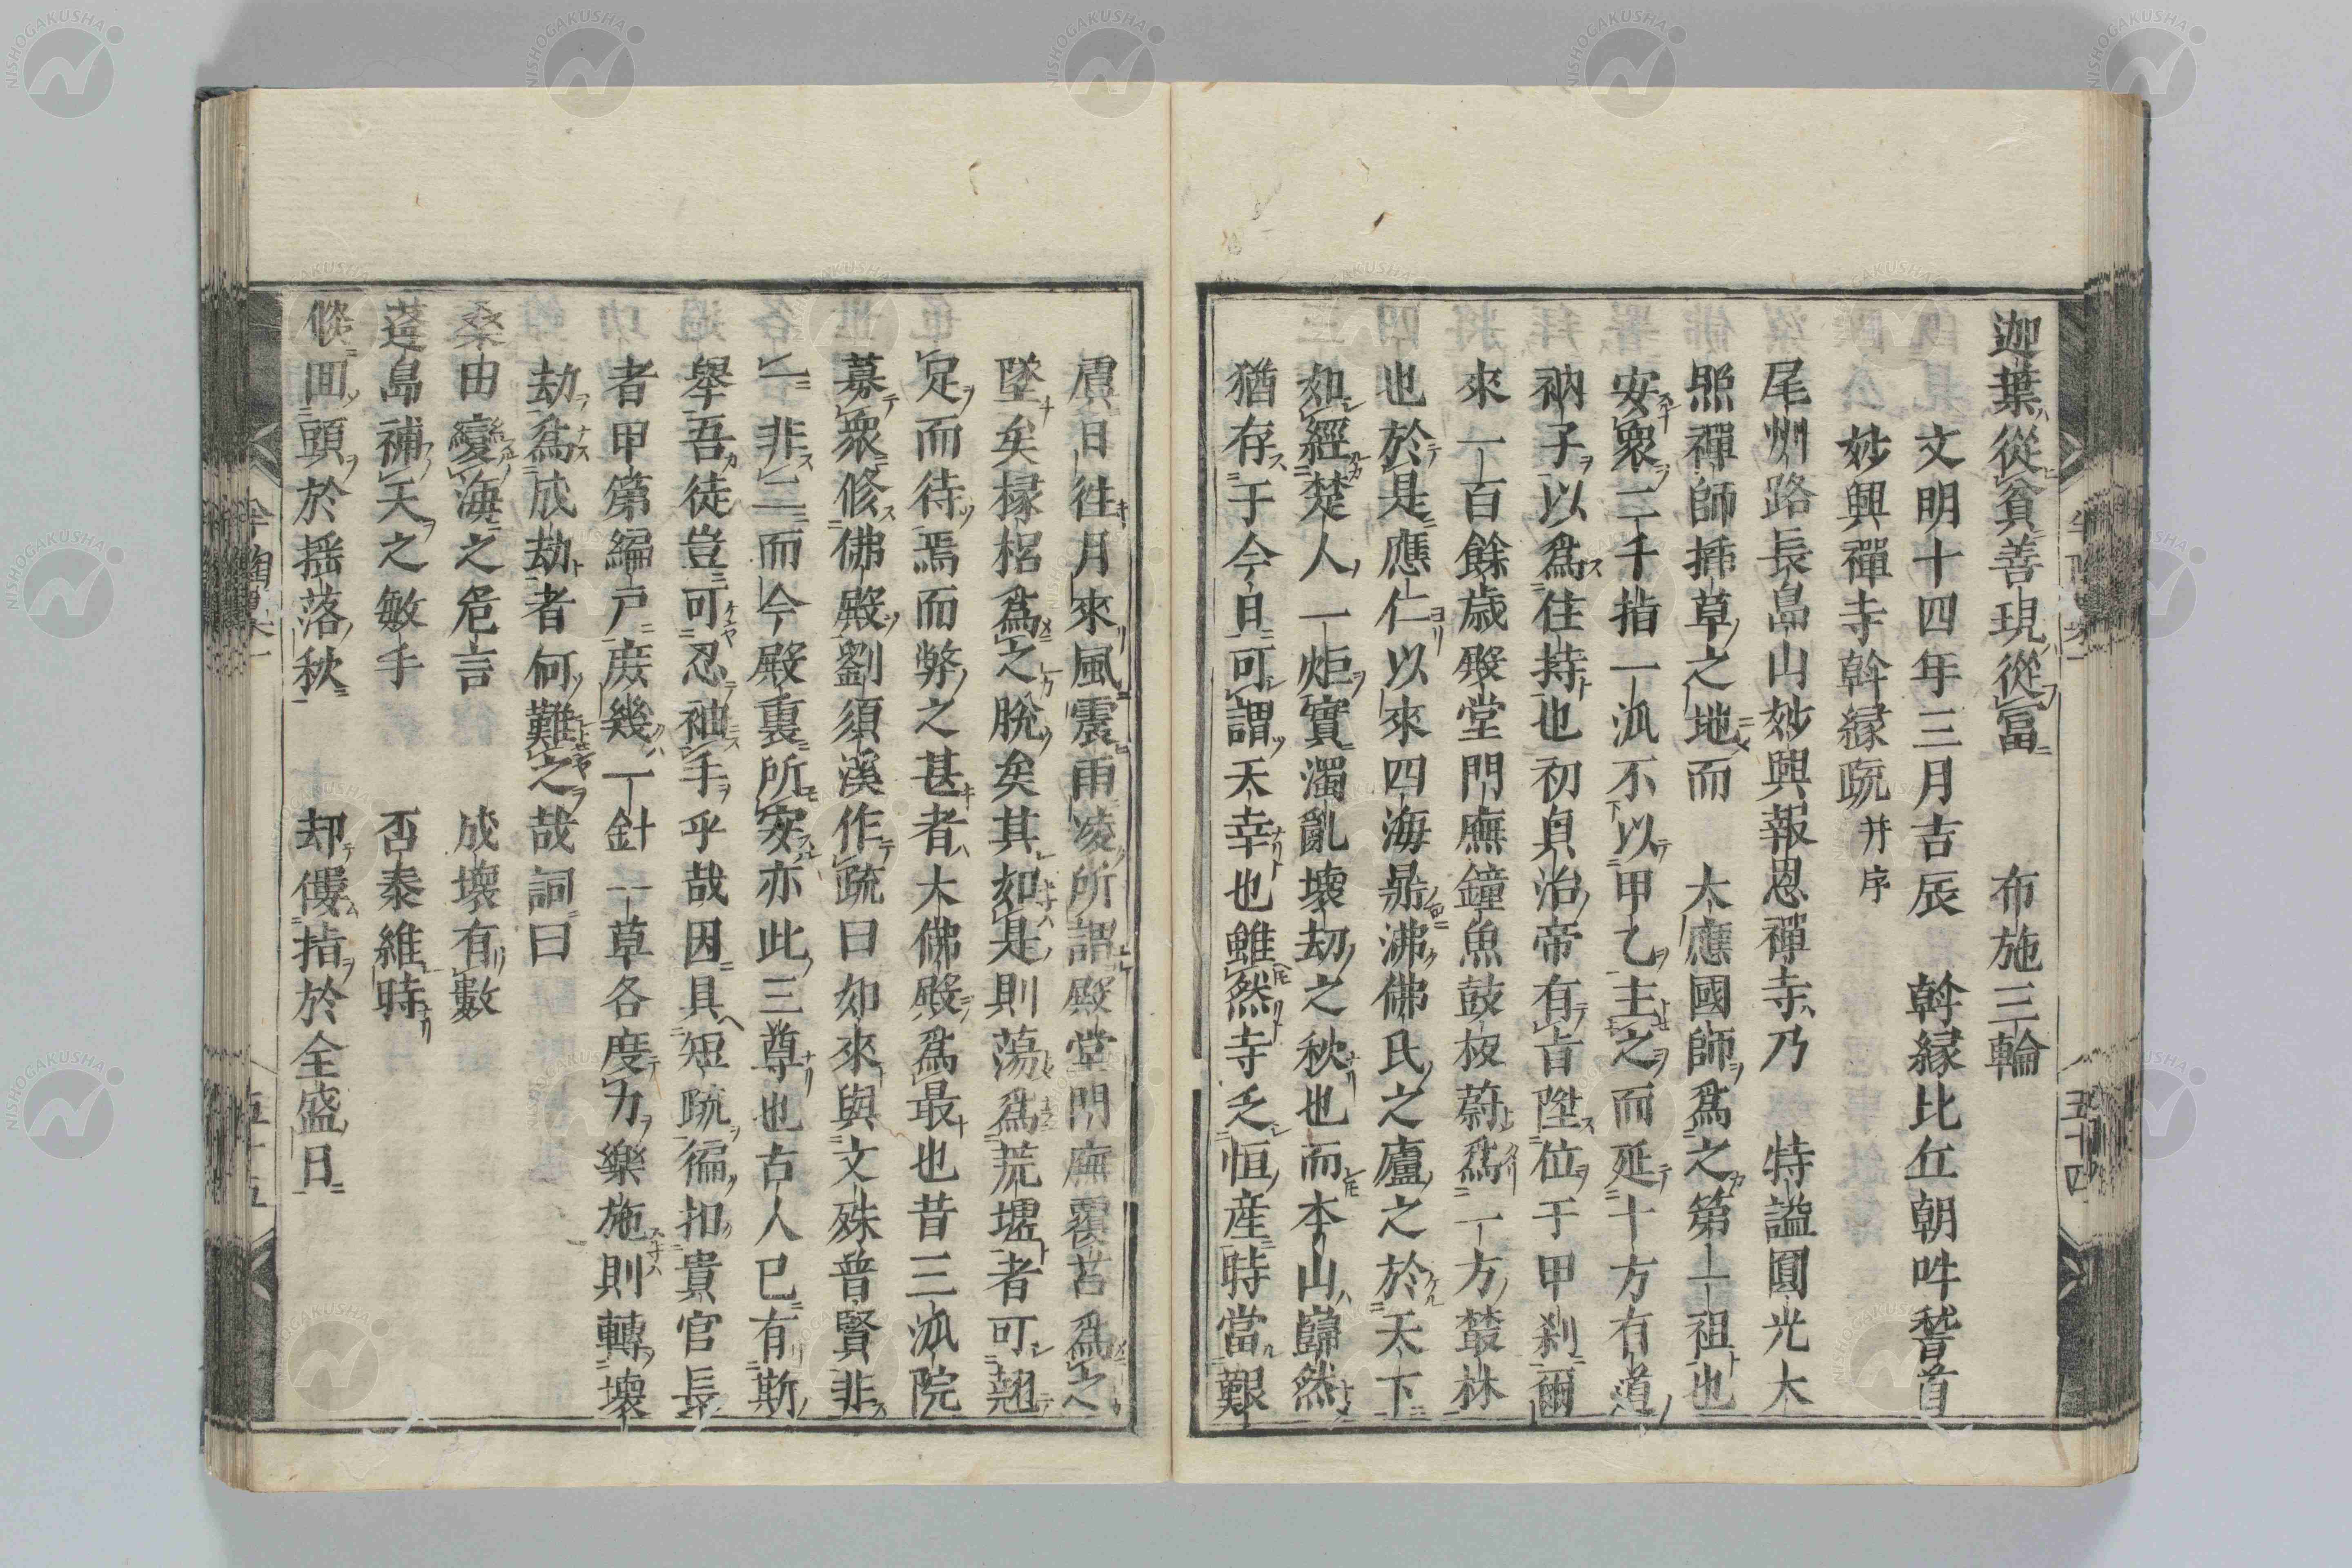 迦葉從貧善現從冨　布施三輪
文明十四年三月吉辰　幹縁比丘朝吽稽首
妙興禪寺幹縁疏并序
尾州路長島山妙興報恩禪寺乃　特謚圓光大
照禪師揷草之地而　大應國師爲之第一祖也
安衆二千指一派不以甲乙主之而延十方有道
衲子以爲住持也初貞治帝有旨陞位于甲刹爾
來一百餘歳殿堂門廡鐘魚鼓板蔚爲一方叢林
也於是應仁以來四海鼎沸佛氏之廬之於天下
如經楚人一炬實濁亂壞劫之秋也而本山巋然
猶存于今日可謂天幸也雖然寺乏恒産時當艱
虞日往月來風震雨凌所謂殿堂門廡覆苫爲之
墜矣椽梠爲之脫矣其如是則蕩爲荒墟者可翹
足而待焉而弊之甚者大佛殿爲最也昔三派院
募衆修佛殿劉須溪作疏曰如來與文殊普賢非
一非二而今殿裏所安亦此三尊也古人已有斯
舉吾徒豈可忍袖手乎哉因具短疏徧扣貴官長
者甲第編戸庶幾一針一草各度力樂施則轉壞
劫爲成劫者何難之哉詞曰
桑田變海之危言　成壞有數
蓬島補天之敏手　否泰維時
倐回頭於揺落秋　却僂指於全盛日
五十四
五十五